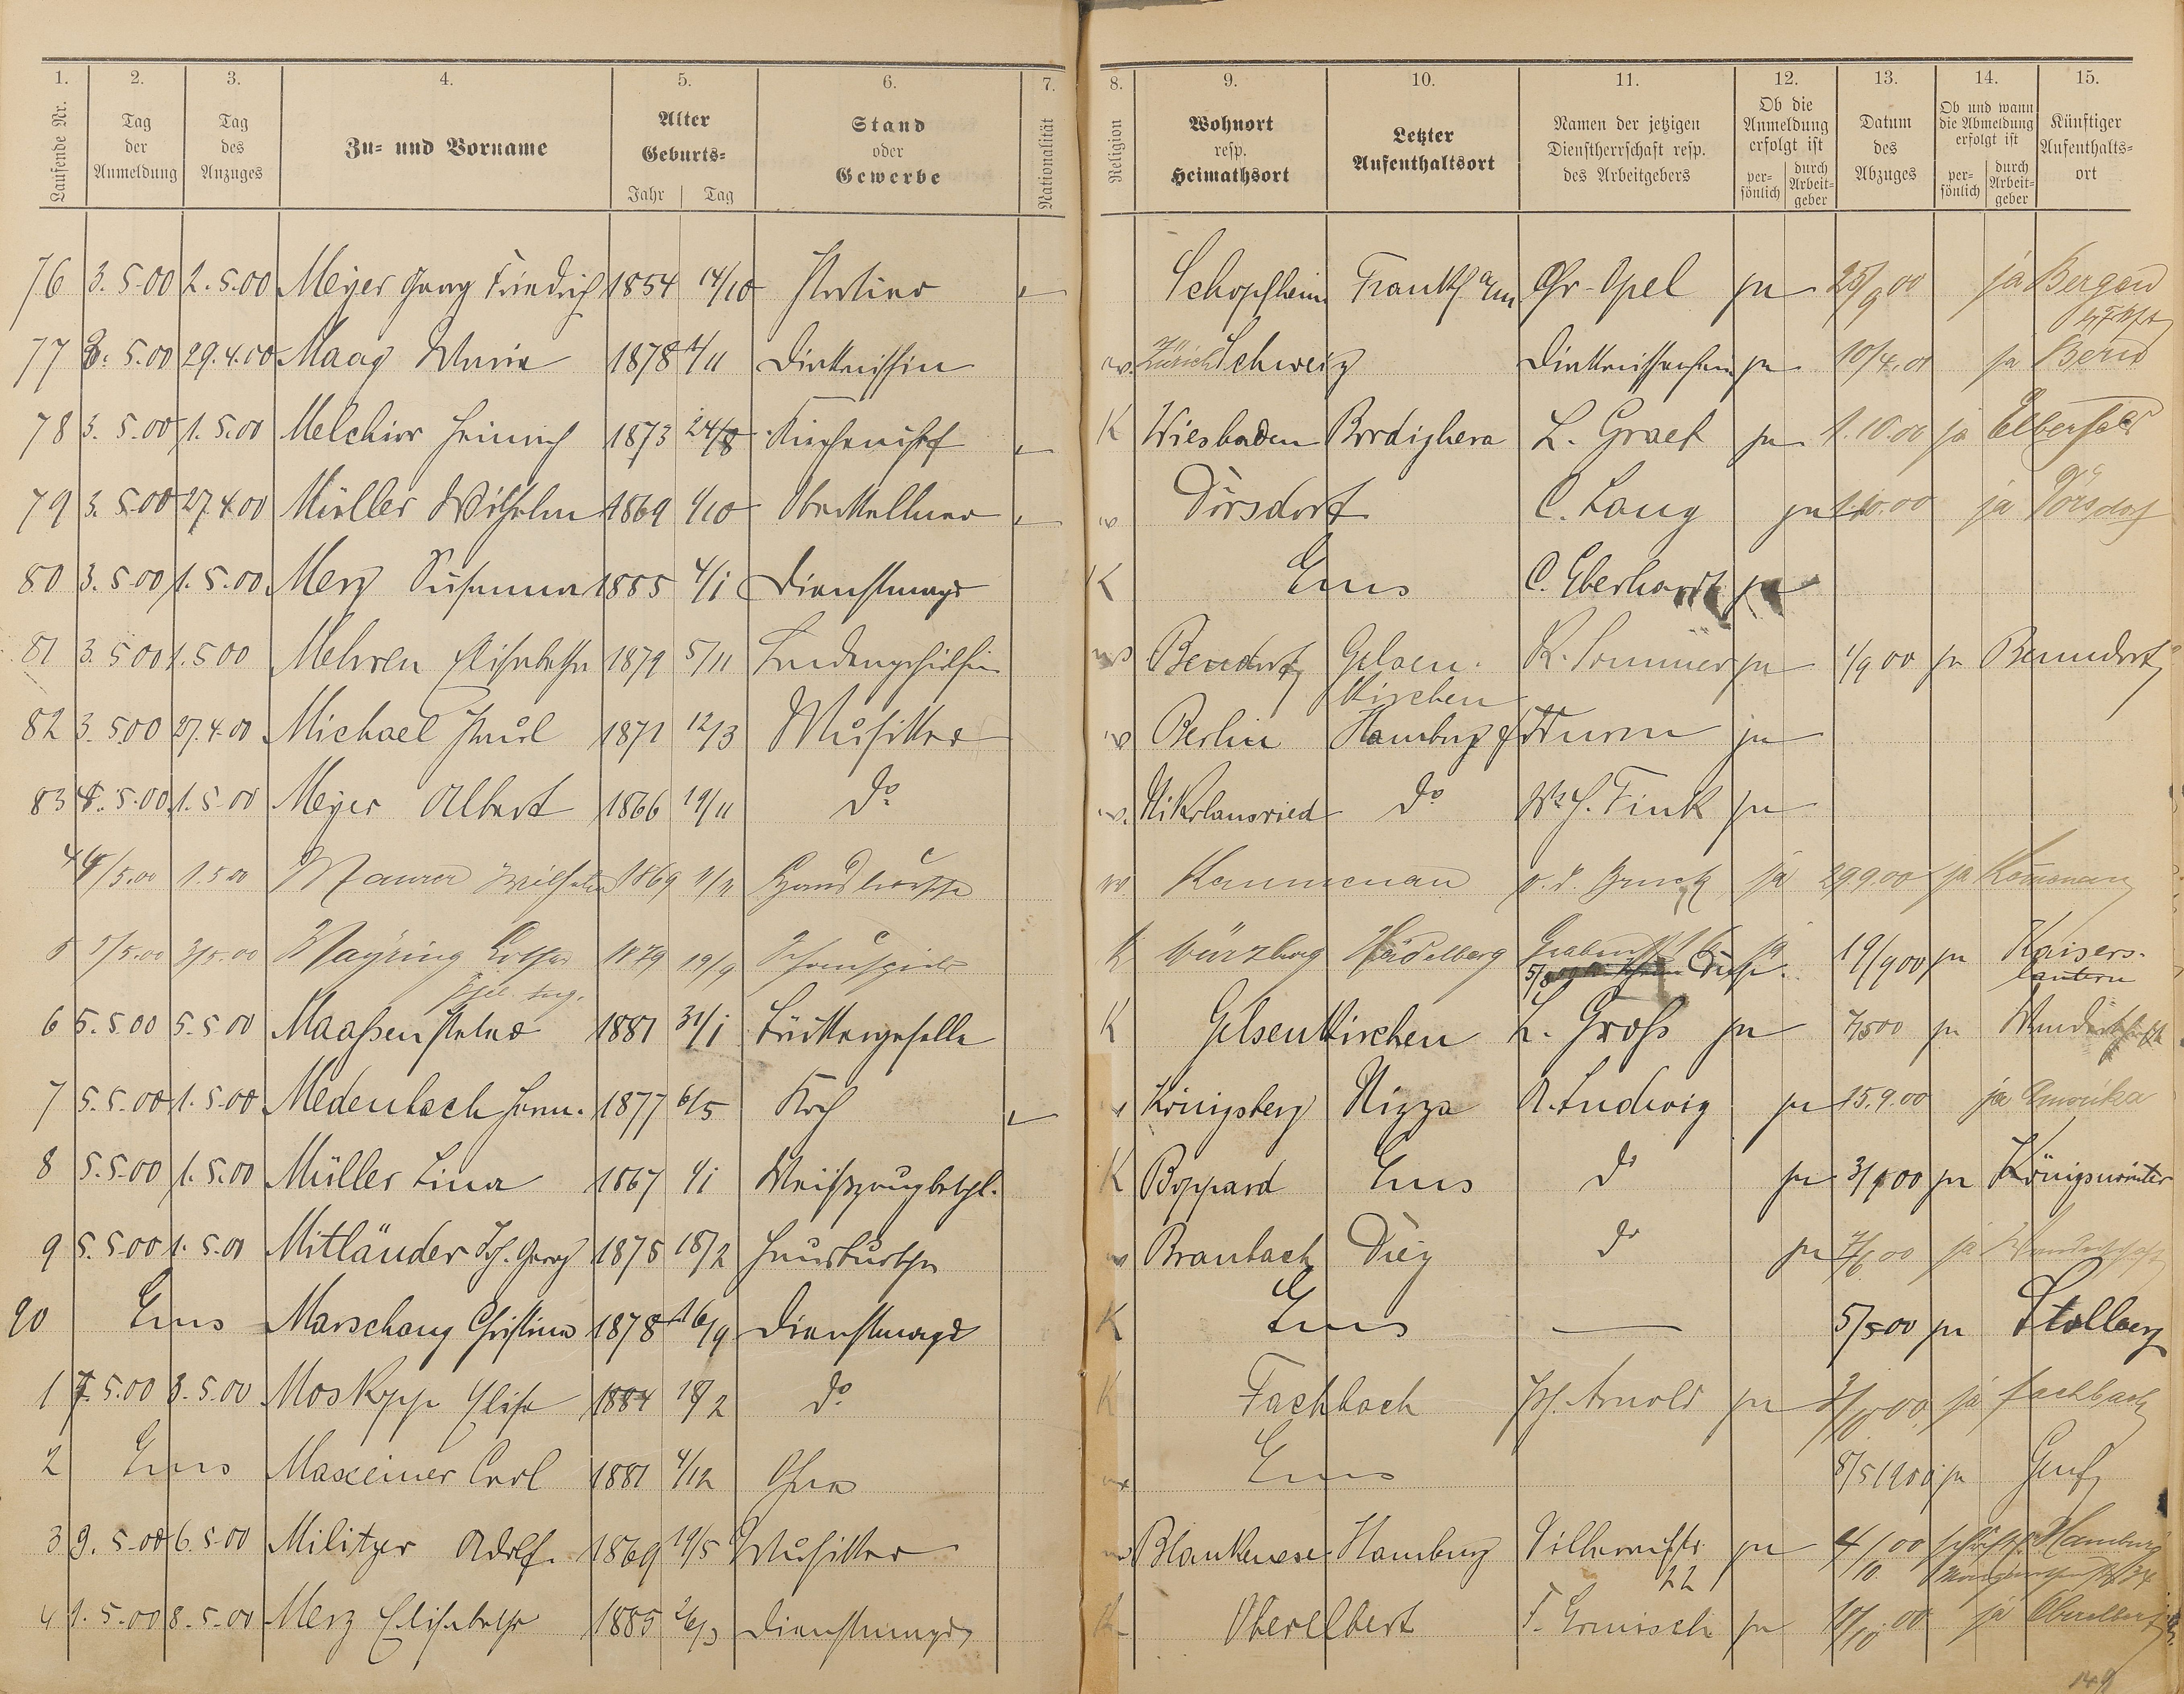 1. 2. 3. 4. 5. 6. 7. 8. 9. 10. 11. 12. 13. 14. 15.
Laufende Nr. Tag der Anmeldung Tag des Anzuges Zu- und Vorname Alter Geburts- Jahr Tag Stand oder Gewerbe Nationalität Religion Wohnort resp. Heimathsort Letzter Aufenthaltsort Namen der jetzigen Dienstherrschaft resp. des Arbeitgebers Ob die Anmeldung erfolgt ist per- sönlich durch Arbeit- geber Datum des Abzuges Ob und wann die Abmeldung erfolgt ist per- sönlich durch Arbeit- geber Künftiger Aufenthalts- ort
76 3.5.00 2.5.00 Meyer Georg Friedrich 1854 14/10 Portier Schopfheim Frankf a/m Chr. Opel ja 25/9 00 ja Bergen
77 3.5.00 29.4.00 Maag Maria 1878 4/11 Diakonissin ev. Zürich Schweiz ja 10/4.01 ja Bern
78 3.5.00 1.5.00 Melchior Heinrich 1873 24/8 Küchenchef K Wiesbaden Bordighera L. Graef ja 1.10.00 ja Elberfeld
79 3.5.00 27.4.00 Müller Wilhelm 1869 1/10 Oberkellner ev Dörsdorf C. Lang ja 1.10.00 ja Dörsdorf
80 3.5.00 1.5.00 Merz Susanna 1885 4/1 Dienstmagd K Ems C. Eberhardt ja
81 3.5.00 1.5.00 Mehren Elisabetha 1879 5/11 Ladengehilfin ev Bendorf Gelsen-
kirchen R. Sommer ja 1/9 00 ja Benndorf
82 3.5.00 27.4.00 Michael Paul 1871 12/3 Musiker ev Berlin Hamburg ja
83 4.5.00 1.5.00 Meyer Albert 1866 19/11 do ev. Nikolausried do H. Fink ja
4 4/5.00 1.5.00 Maurer Wilhelm 1869 11/11 Hausbursche ev Kemmenau ja 29.9.00 ja Kemmenau
5 5/5.00 3/5.00 Mayring 1879 19/9 Schauspieler K Würzburg Heidelberg ja 19/9 00 ja Kaisers-
lautern
6 5.5.00 5.5.00 Maaßen Peter 1881 31/1 K Gelsenkirchen L. Groß ja 7/5 00 ja Wanderschaft
7 5.5.00 1.5.00 Medenbach Herm. 1877 6/5 Koch ev Königsberg Nizza A. Ludwig ja 15.9.00 ja Amerika
8 5.5.00 1.5.00 Müller Lina 1867 1/1 K Boppard Ems do ja ja Königswinter
9 5.5.00 1.5.00 Mitländer Joh. Georg 1875 18/2 Hausbursche ev Braubach Diez do ja 7/6 00 ja Wanderschaft
90 Ems Marschang Christina 1878 16/9 Dienstmagd K Ems — 5/5 00 ja Stollberg
1 7.5.00 3.5.00 Moskopp Elise 1884 18/2 do K Fachbach Jos. Arnold ja ja Fachbach
2 Ems Maxeiner Carl 1881 4/12 Ems 8/5 1900 ja Genf
3 9.5.00 6.5.00 Militzer Adolf 1869 19/5 Musiker ev Blankenese Hamburg 22 ja 4/10 00 Hamburg
4 9.5.00 8.5.00 Merz Elisabeth 1885 26/3 Dienstmagd K Oberelbert F. Ermisch ja 18/10.00 ja Oberelbert
149